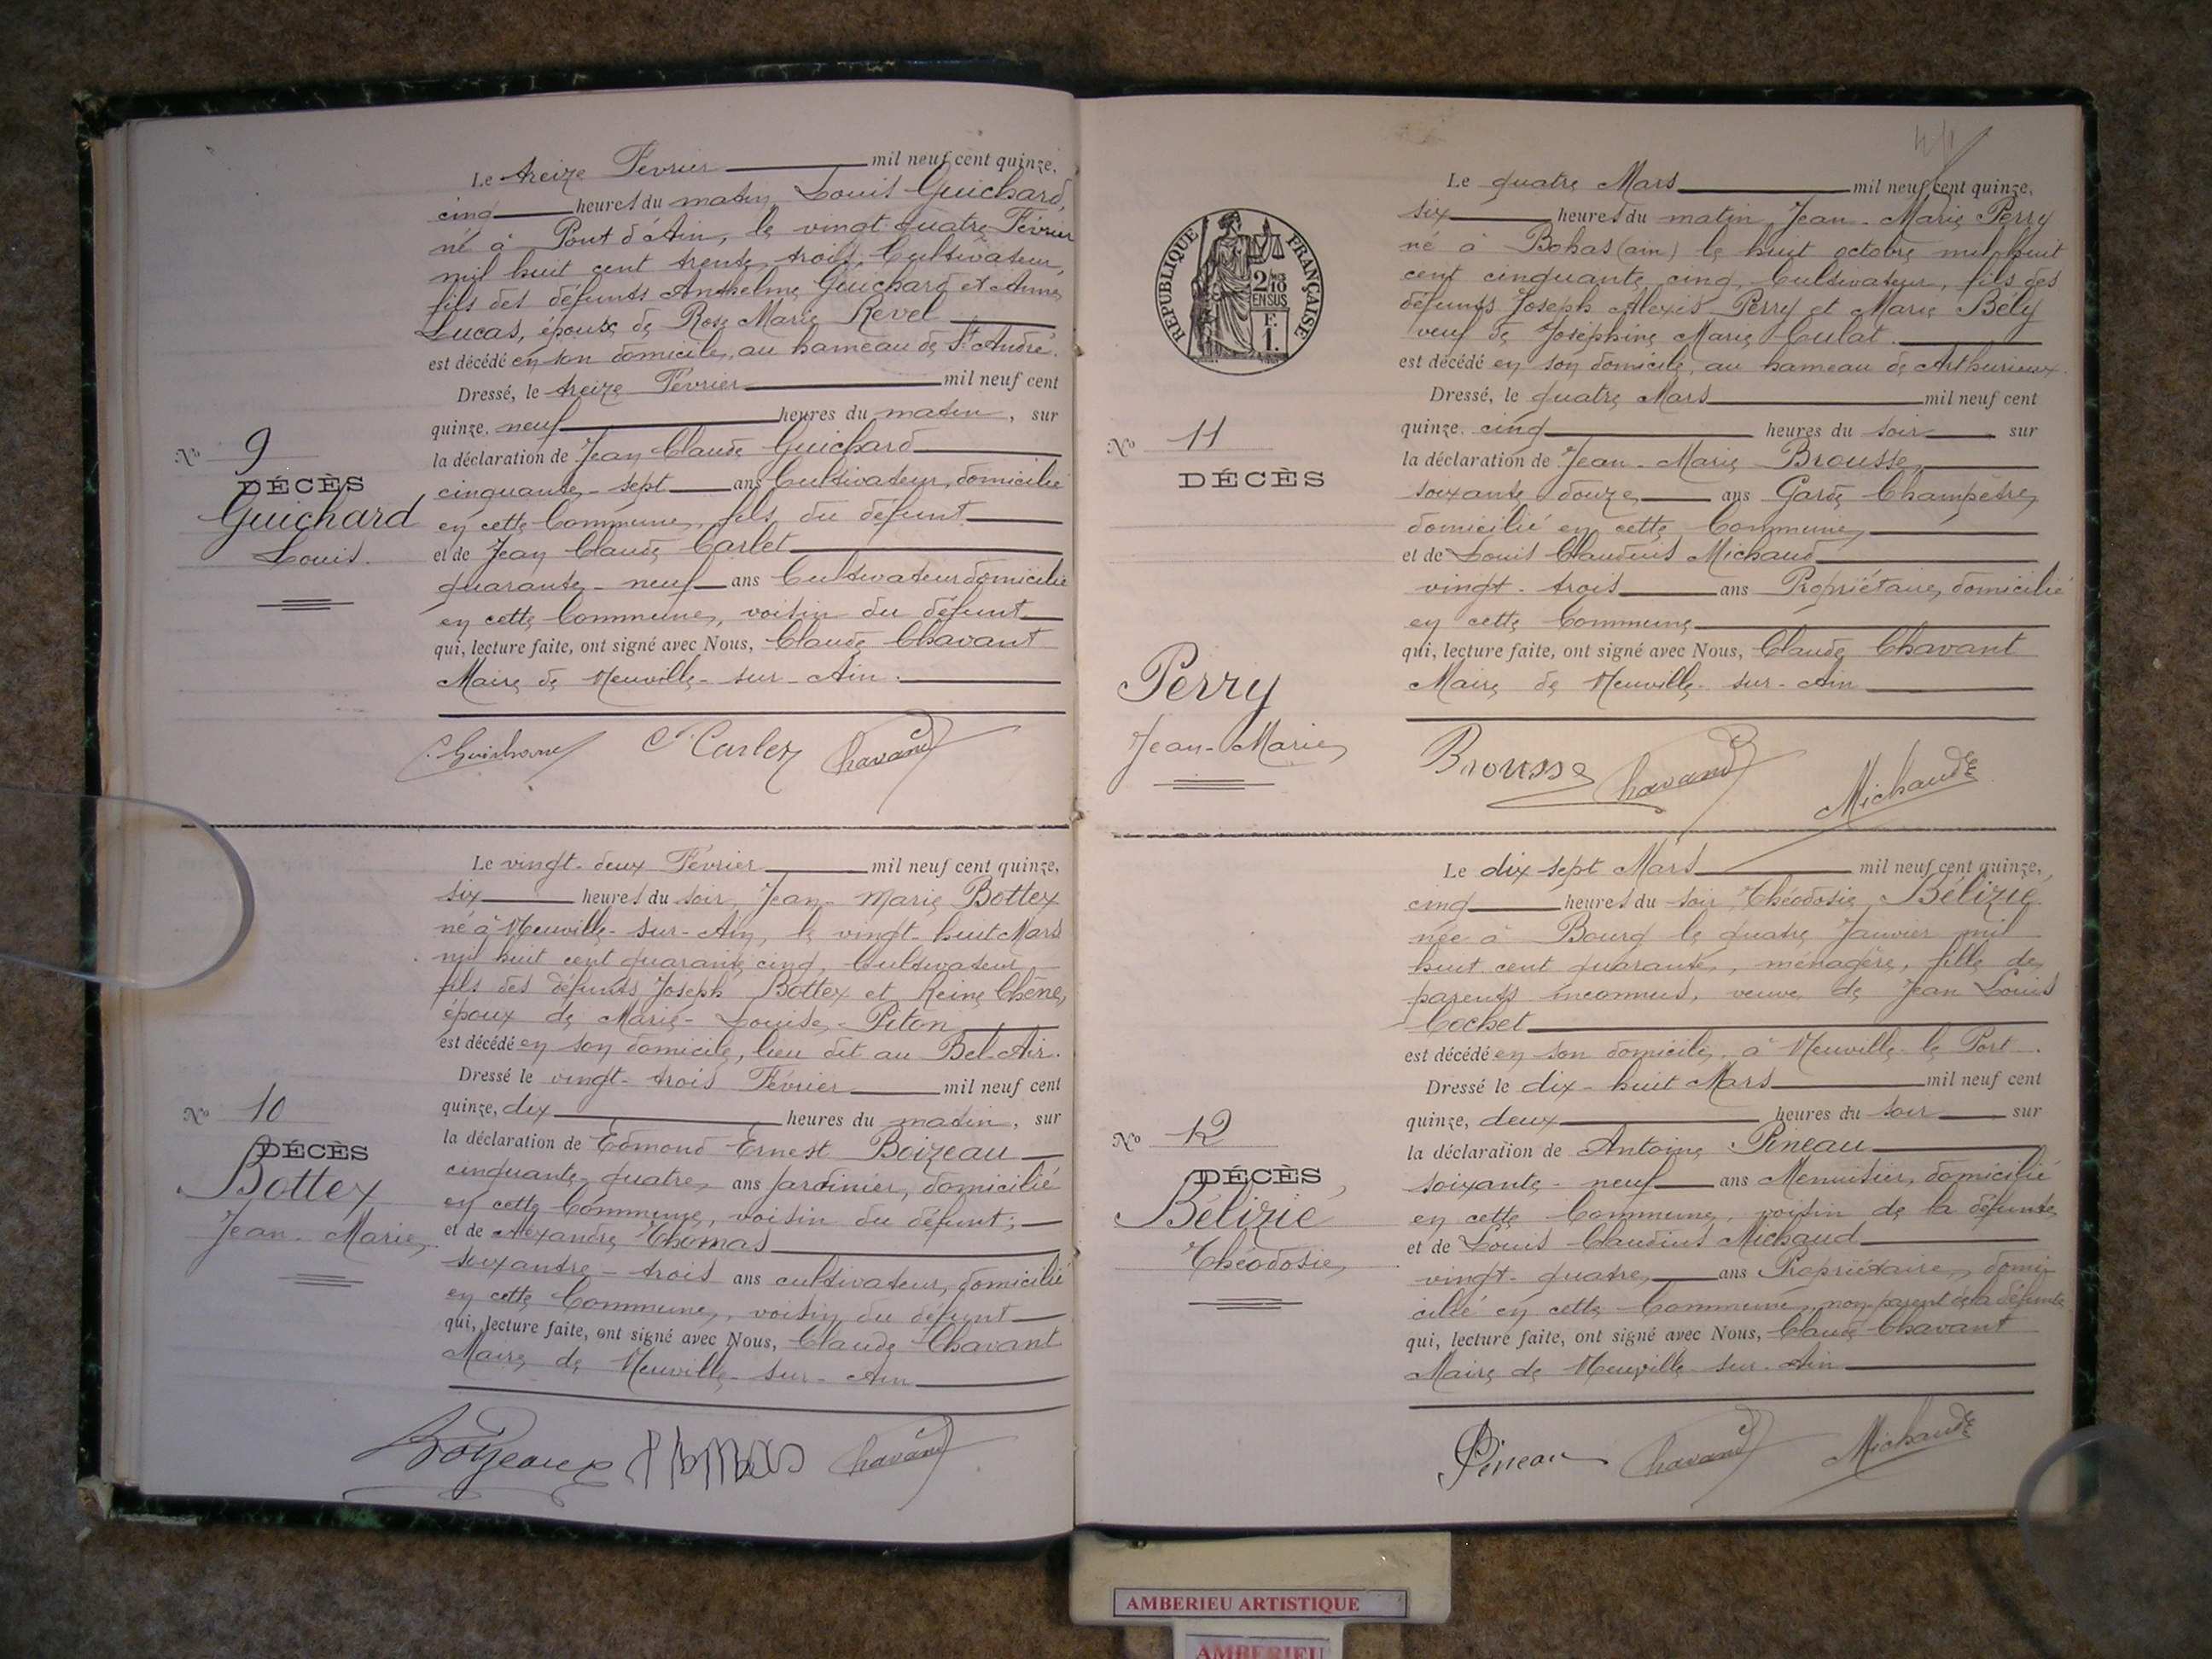 Le treize Février mil neuf cent quinze,
cinq heures du matin, Louis Guichard,
né à Pont d'Ain, le vingt quatre Février
mil huit cent trente trois, Cultivateur,
fils des défunts Anthelme Guichard et Anne
Lucas, époux de Rose Marie Revel
est décédé en son domicile, au hameau de St André.
Dressé, le treize Février mil neuf cent
quinze, neuf heures du matin, sur
la déclaration de Jean Claude Guichard
cinquante-sept ans Cultivateur, domicilié
en cette Commune, fils du défunt
et de Jean Claude Carlet
quarante-neuf ans Cultivateur domicilié
en cette Commune, voisin du défunt
qui, lecture faite, ont signé avec Nous, Claude Chavant
Maire de Neuville-sur-Ain.
No 9
DÉCÈS
Guichard
Louis.
C. Guichard C. Carlet Chavant
Le vingt-deux Février mil neuf cent quinze,
six heures du soir, Jean-Marie Bottex
né à Neuville-sur-Ain, le vingt-huit Mars
mil huit cent quarante cinq, Cultivateur
fils des défunts Joseph Bottex et Reine Chêne,
époux de Marie-Louise-Piton
est décédé en son domicile, lieu dit au Bel-Air.
Dressé le vingt-trois Février mil neuf cent
quinze, dix heures du matin, sur
la déclaration de Edmond Ernest Boizeau
cinquante quatre ans Jardinier, domicilié
en cette Commune, voisin du défunt;
et de Alexandre Thomas
soixantre-trois ans cultivateur, domicilié
en cette Commune, voisin du défunt
qui, lecture faite, ont signé avec Nous, Claude Chavant
Maire de Neuville-sur-Ain
No 10
DÉCÈS
Bottex
Jean-Marie
Boizeau Thomas Chavant
RÉPUBLIQUE FRANÇAISE
2/10
EN SUS
F.
1.
Le quatre Mars mil neuf cent quinze,
six heures du matin, Jean-Marie Perry
né à Bohas (ain) le huit octobre mil huit
cent cinquante cinq, Cultivateur, fils des
défunts Joseph Alexis Perry et Marie Bély
veuf de Joséphine Marie Culat.
est décédé en son domicile, au hameau de Arthurieux.
Dressé, le quatre Mars mil neuf cent
quinze, cinq heures du soir sur
la déclaration de Jean-Marie Brousse
soixante douze ans Garde Champêtre,
domicilié en cette Commune,
et de Louis Claudius Michaud
vingt-trois ans Propriétaire, domicilié
en cette Commune
qui, lecture faite, ont signé avec Nous, Claude Chavant
Maire de Neuville-sur-Ain
No 11
DÉCÈS
Perry
Jean-Marie
Brousse Chavant Michaud
Le dix sept Mars mil neuf cent quinze,
cinq heures du soir, Théodosie Bélizié
née à Bourg le quatre Janvier mil
huit cent quarante, ménagère, fille de
parents inconnus, veuve de Jean Louis
Cochet
est décédé en son domicile, à Neuville le Port.
Dressé le dix-huit Mars mil neuf cent
quinze, deux heures du soir sur
la déclaration de Antoine Pineau
soixante-neuf ans Menuisier, domicilié
en cette Commune, voisin de la défunte
et de Louis Claudius Michaud
vingt-quatre ans Propriétaire, domi
cilié en cette Commune, non parent de la défunte
qui, lecture faite, ont signé avec Nous, Claude Chavant
Maire de Neuville-sur-Ain
No 12
DÉCÈS
Bélizié
Théodosie
Pineau Chavant Michaud
AMBERIEU ARTISTIQUE
AMBERIEU